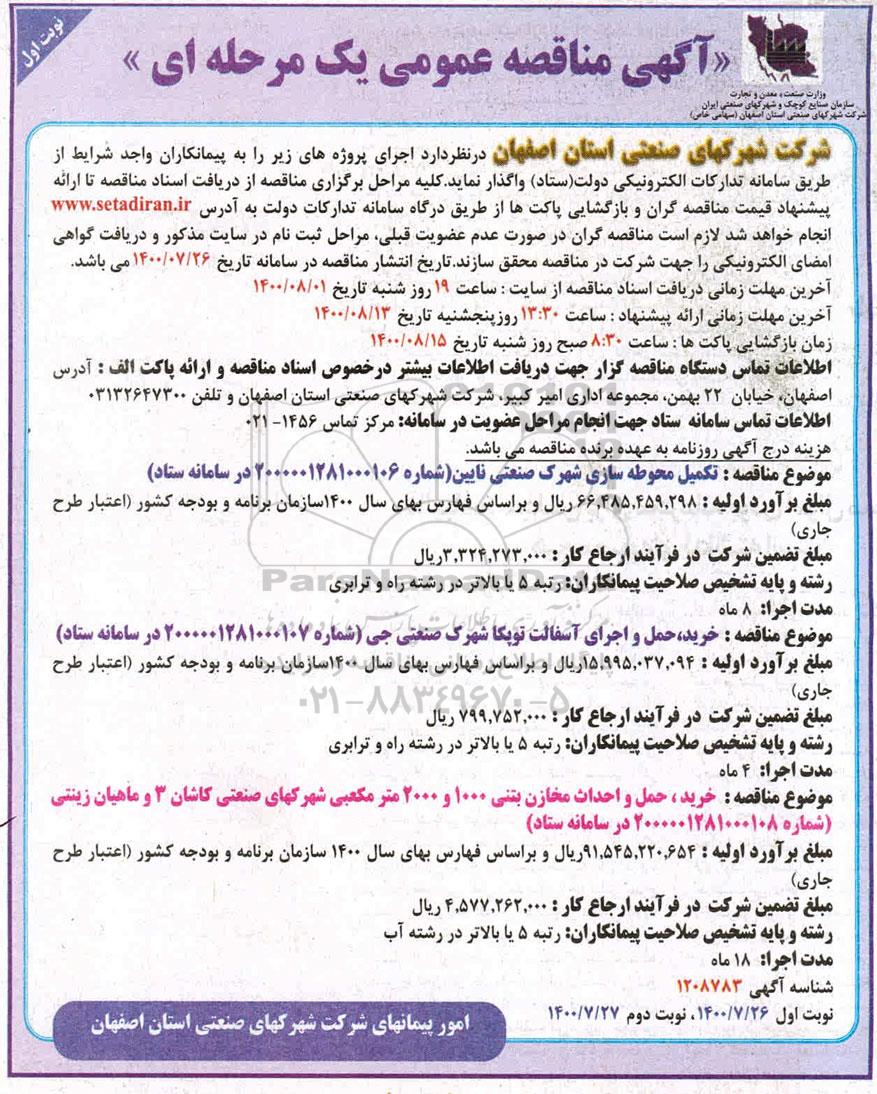 نوبت اول
«آگهی مناقصه عمومی یک مرحله ای»
وزارت صنعت، معدن و تجارت
سازمان صنایع کوچک و شهرکهای صنعتی ایران
شرکت شهرکهای صنعتی استان اصفهان (سهامی خاص)
شرکت شهرکهای صنعتی استان اصفهان درنظردارد اجرای پروژه های زیر را به پیمانکاران واجد شرایط از
طریق سامانه تدارکات الکترونیکی دولت(ستاد) واگذار نماید.کلیه مراحل برگزاری مناقصه از دریافت اسناد مناقصه تا ارائه
پیشنهاد قیمت مناقصه گران و بازگشایی پاکت ها از طریق درگاه سامانه تدارکات دولت به آدرس www.setadiran.ir
انجام خواهد شد لازم است مناقصه گران در صورت عدم عضویت قبلی، مراحل ثبت نام در سایت مذکور و دریافت گواهی
امضای الکترونیکی را جهت شرکت در مناقصه محقق سازند.تاریخ انتشار مناقصه در سامانه تاریخ ۱۴۰۰/۰۷/۲۶ می باشد.
آخرین مهلت زمانی دریافت اسناد مناقصه از سایت : ساعت ۱۹ روز شنبه تاریخ ۱۴۰۰/۰۸/۰۱
آخرین مهلت زمانی ارائه پیشنهاد : ساعت ۱۳:۳۰ روزپنجشنبه تاریخ ۱۴۰۰/۰۸/۱۳
زمان بازگشایی پاکت ها : ساعت ۸:۳۰ صبح روز شنبه تاریخ ۱۴۰۰/۰۸/۱۵
اطلاعات تماس دستگاه مناقصه گزار جهت دریافت اطلاعات بیشتر درخصوص اسناد مناقصه و ارائه پاکت الف : آدرس
اصفهان، خیابان ۲۲ بهمن، مجموعه اداری امیر کبیر، شرکت شهرکهای صنعتی استان اصفهان و تلفن ۰۳۱۳۲۶۴۷۳۰۰
اطلاعات تماس سامانه ستاد جهت انجام مراحل عضویت در سامانه: مرکز تماس ۱۴۵۶- ۰۲۱
هزینه درج آگهی روزنامه به عهده برنده مناقصه می باشد.
موضوع مناقصه : تکمیل محوطه سازی شهرک صنعتی نایین(شماره ۲۰۰۰۰۰۱۲۸۱۰۰۰۱۰۶ در سامانه ستاد)
مبلغ برآورد اولیه : ۶۶,۴۸۵,۴۵۹,۲۹۸ ریال و براساس فهارس بهای سال ۱۴۰۰سازمان برنامه و بودجه کشور (اعتبار طرح
جاری)
مبلغ تضمین شرکت در فرآیند ارجاع کار : ۳,۳۲۴,۲۷۳,۰۰۰ریال
رشته و پایه تشخیص صلاحیت پیمانکاران: رتبه ۵ یا بالاتر در رشته راه و ترابری
مدت اجرا: ۸ ماه
موضوع مناقصه : خرید،حمل و اجرای آسفالت توپکا شهرک صنعتی جی (شماره ۲۰۰۰۰۰۱۲۸۱۰۰۰۱۰۷ در سامانه ستاد)
مبلغ برآورد اولیه : ۱۵,۹۹۵,۰۳۷,۰۹۴ریال و براساس فهارس بهای سال ۱۴۰۰سازمان برنامه و بودجه کشور (اعتبار طرح
جاری)
مبلغ تضمین شرکت در فرآیند ارجاع کار : ۷۹۹,۷۵۲,۰۰۰ ریال
رشته و پایه تشخیص صلاحیت پیمانکاران: رتبه ۵ یا بالاتر در رشته راه و ترابری
مدت اجرا: ۴ ماه
موضوع مناقصه : خرید ، حمل و احداث مخازن بتنی ۱۰۰۰ و ۲۰۰۰ متر مکعبی شهرکهای صنعتی کاشان ۳ و ماهیان زینتی
(شماره ۲۰۰۰۰۰۱۲۸۱۰۰۰۱۰۸ در سامانه ستاد)
مبلغ برآورد اولیه : ۹۱,۵۴۵,۲۲۰,۶۵۴ریال و براساس فهارس بهای سال ۱۴۰۰ سازمان برنامه و بودجه کشور (اعتبار طرح
جاری)
مبلغ تضمین شرکت در فرآیند ارجاع کار : ۴,۵۷۷,۲۶۲,۰۰۰ ریال
رشته و پایه تشخیص صلاحیت پیمانکاران: رتبه ۵ یا بالاتر در رشته آب
مدت اجرا: ۱۸ ماه
شناسه آگهی ۱۲۰۸۷۸۳
نوبت اول ۱۴۰۰/۷/۲۶، نوبت دوم ۱۴۰۰/۷/۲۷
امور پیمانهای شرکت شهرکهای صنعتی استان اصفهان
ParsNamadData
۰۲۱-۸۸۳۴۹۶۷۰-۵